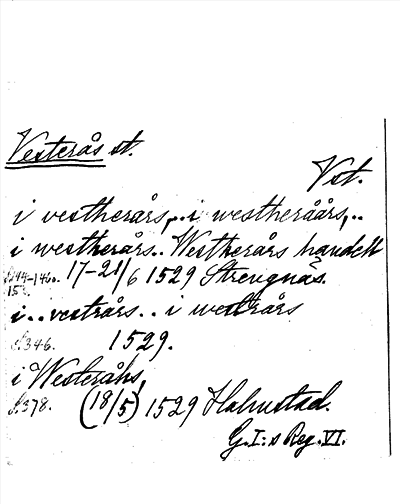 Vesterås st.
Vst.
i vestherårs,.. i westheråårs,..
i westherårs.. Westherårs handell
S. 144-146. 17-21/6 1529 Strengnäs.
i.. vestrårs.. i westrårs
S. 346. 1529.
i Westeråhs,
S. 378. (18/5) 1529 Halmstad.
G. I:s Reg. VI.